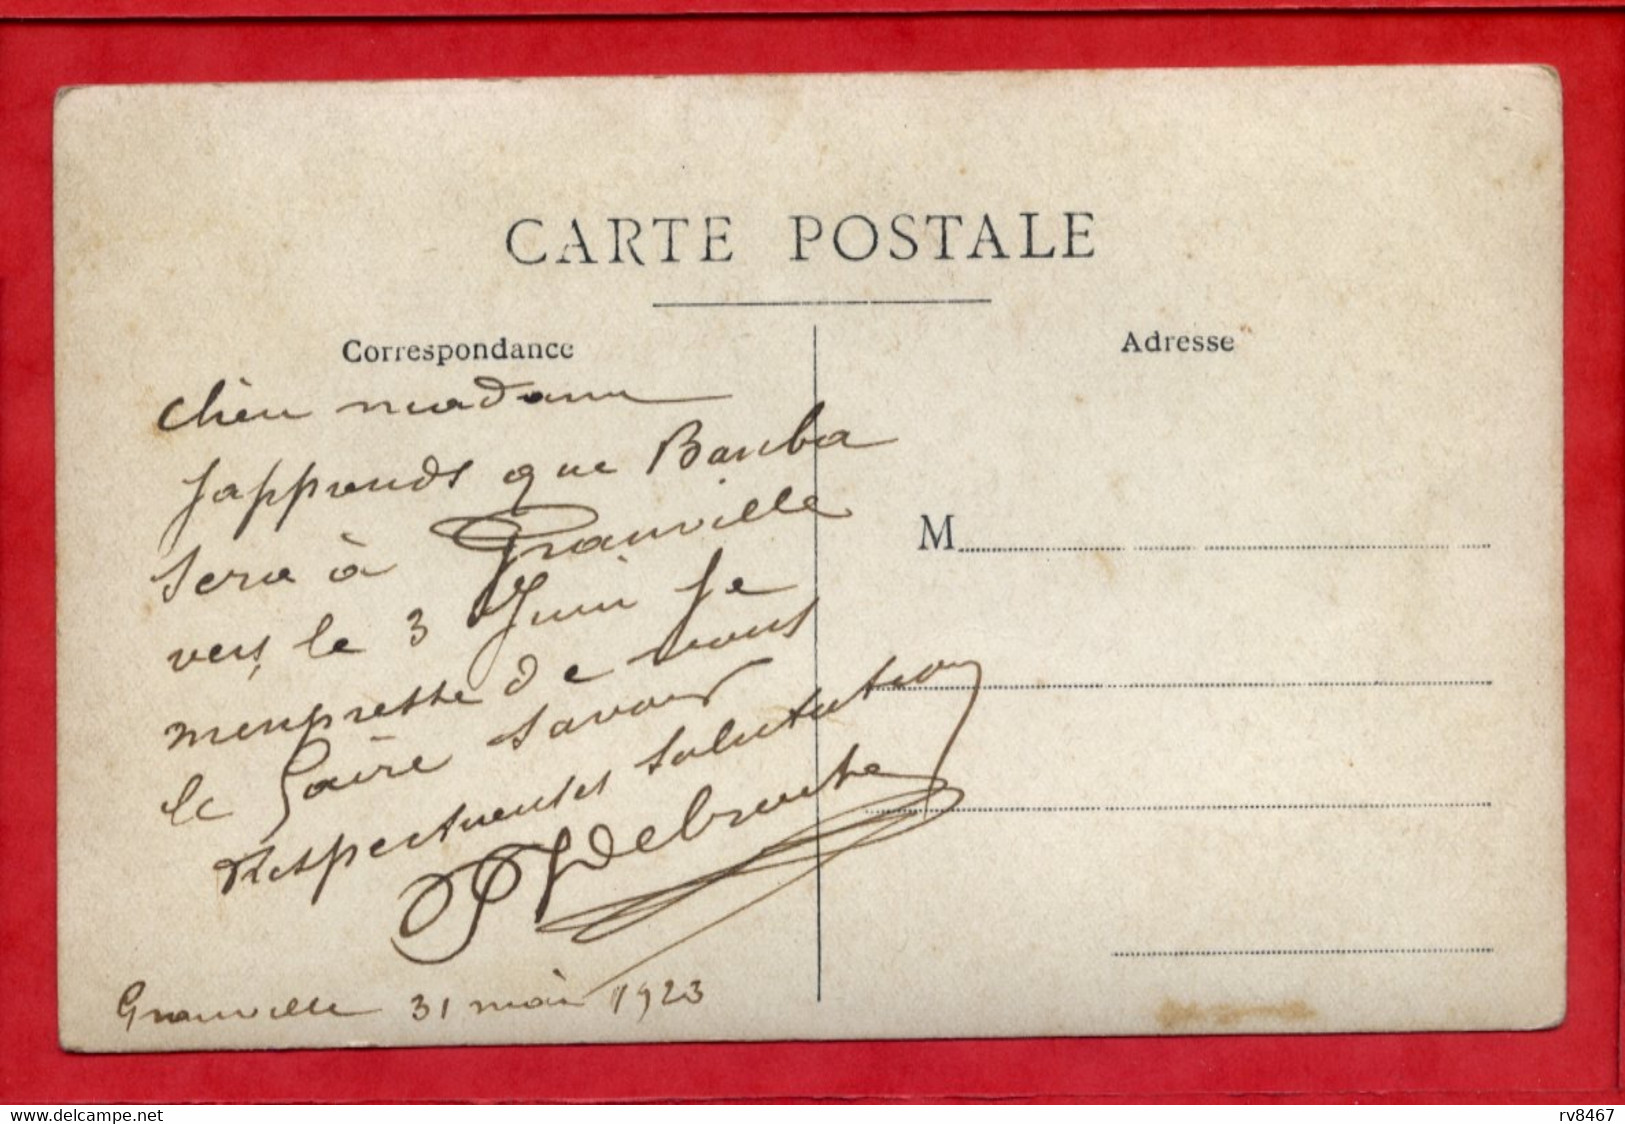 CARTE POSTALE
Correspondance
Adresse
chèu madame
Japprends que Banba
sera à Granville
vers le 3 Juin Je
menpresse de vous
le faire savoir
Respectueuses salutation
Debruche
Granville 31 mai 1923
M
www.delcampe.net
rv8467